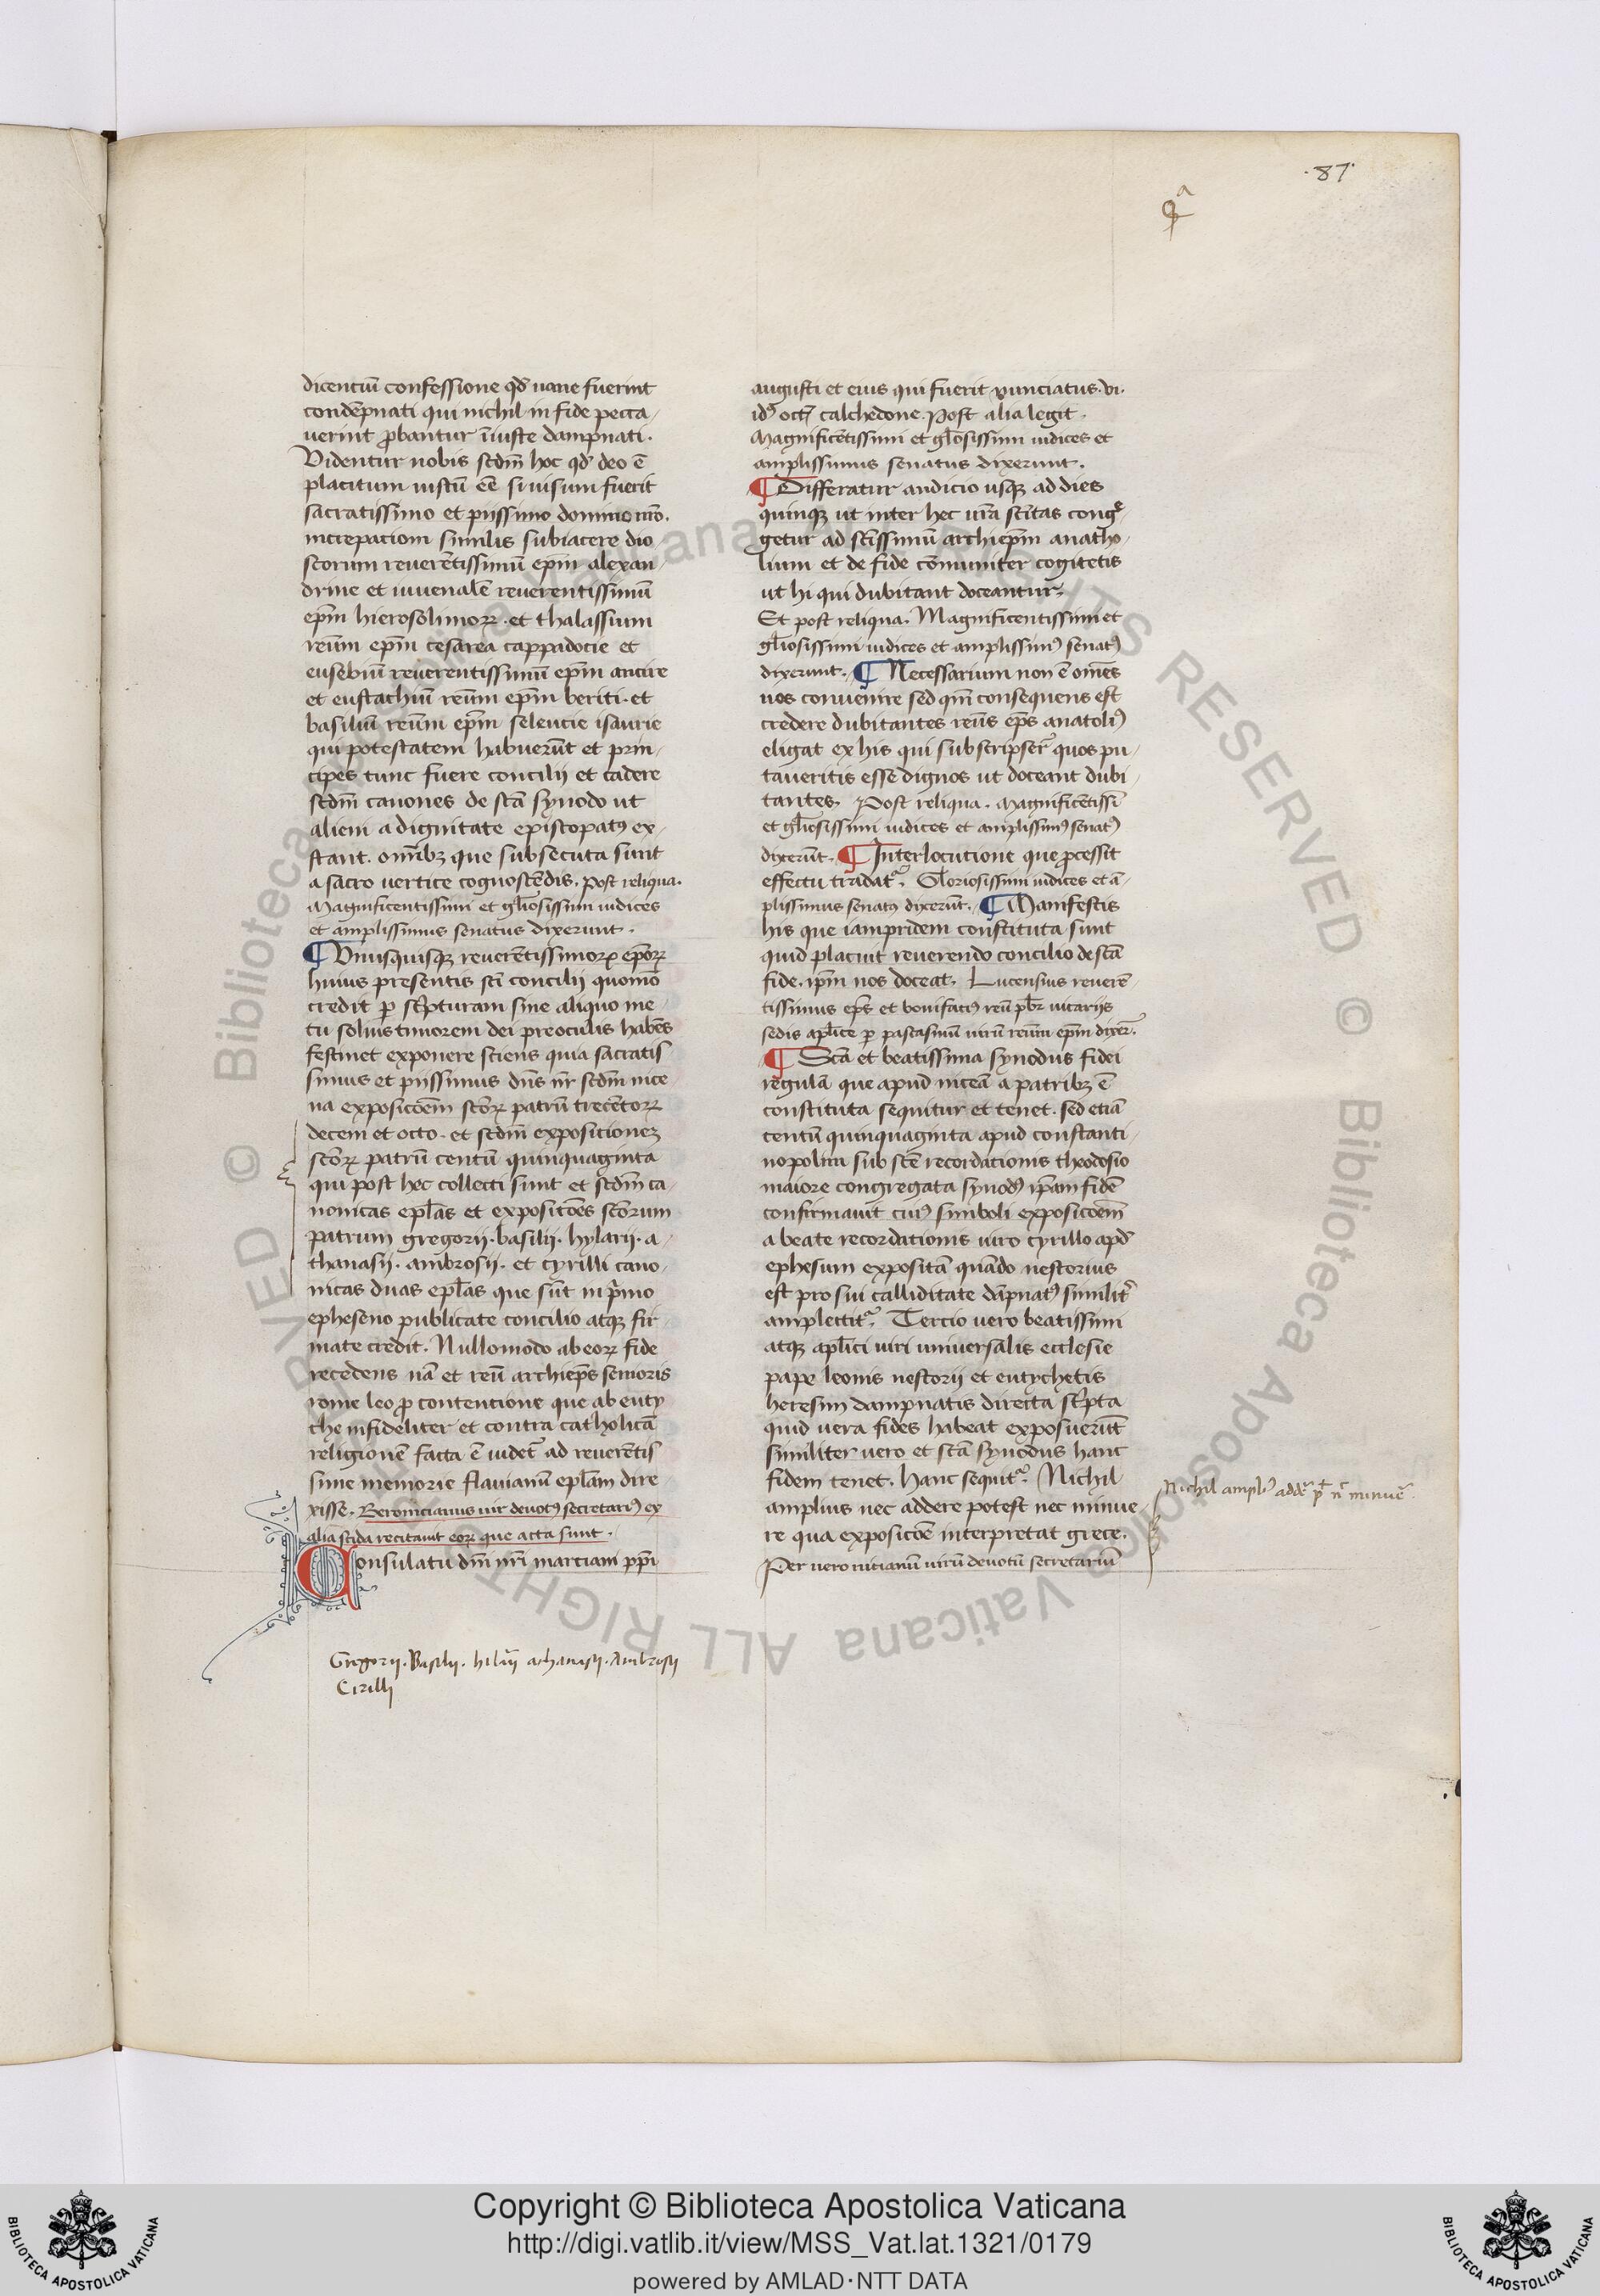 .87.
qᵃ
dicentiū confessione qđ uane fuerint
condēpnati qui nichil in fide pecca/
uerint ꝓbantur īiuste dampnati.
Videntur nobis scd̄m hoc qđ deo ē
placitum iustū eē si uisum fuerit
sacratissimo et piissimo domino nr̄o.
increpacioni similis subiacere dio/
scorum reuerētissimū ep̄m alexan/
drine et iuuenalē reuerentissimū
ep̄m hierosolimoꝝ. et thalassium
reūm ep̄m cesarea cappadocie et
eusebiū reuerentissimū ep̄m ancire
et eustachiū reūm ep̄m beriti. et
basiliū reūm ep̄m seleucie isaurie
qui potestatem habuerūt et prin/
cipes tunc fuere concilij et cadere
scd̄m canones de scā synodo ut
alieni a dignitate episcopatꝰ ex/
stant. om̄ibꝫ que subsecuta sunt
a sacro uertice cognoscēdis. Post reliqua.
Magnificentissimi et gl̄iosissimi iudices
et amplissimus senatus dixerunt.
¶ Vnusquisqꝫ reuerētissimoꝝ ep̄oꝝ
huius presentis sc̄i concilij quomō
credit ꝑ sc̄pturam sine aliquo me/
tu solius timorem dei preoculis habēs
festinet exponere sciens quia sacratis/
simus et piissimus dn̄s nr̄ scd̄m nice/
na exposicōem sc̄oꝝ patrū trecētoꝝ
decem et octo. et scd̄m exposicionez
sc̄oꝝ patrū centū quinquaginta
qui post hec collecti sunt et scd̄m ca/
nonicas epl̄as et exposicōes sc̄orum
patrum gregorii. basilii. hylarii. a/
thanasij. ambrosij. et cyrilli cano/
nicas duas epl̄as que sūt in p̄mo
epheseno publicate concilio atqꝫ fir/
mate credit. Nullomodo ab eoꝝ fide
recedens nā et reū archiep̄s senioris
rome leo ꝓ contentione que ab euty
che infideliter et contra catholicā
religionē facta ē uidet᷑ ad reuerētis/
sime memorie flauianū epl̄am dire/
xisse. Beronicianus uir deuotꝰ secretariꝰ ex
alia scida recitauit eoꝝ que acta sunt.
Consulatu dn̄i nr̄i marciani pp̄i
Gregorij. Basilij. hilarij athanasij. Ambrosij
Cirilli
augusti et eius qui fuerit nunciatus. vi.
idꝰ oct̄ calchedone. Post alia legit.
Magnificētissimi et gl̄osissimi iudices et
amplissimus senatus dixerunt.
¶ Differatur audicio usqꝫ ad dies
quinqꝫ ut inter hec ur̄a scītas congͬ/
getur ad sc̄issimū archiep̄m anatho/
lium et de fide cōmuniter cogitetis
ut hi qui dubitant doceantur.
Et post reliqua. Magnificentissimi et
gl̄iosissimi iudices et amplissimꝰ senatꝰ
dixerunt. ¶ Necessarium non ē om̄es
uos conuenire sed qm̄ consequens est
credere dubitantes reūs ep̄s anatoliꝰ
eligat ex his qui subscripser̄ quos pu/
taueritis esse dignos ut doceant dubi/
tantes. Post reliqua. Magnificētissī
et gl̄iosissimi iudices et amplissimꝰ senatꝰ
dixerūt. ¶ Interlocutione que ꝓcessit
effectu tradat᷑. Gloriosissimi iudices et ā/
plissimus senatꝰ dixerūt. ¶ Manifestis
his que iampridem constituta sunt
quid placuit reuerendo concilio de scā
fide. ip̄m nos doceat. Lucensius reuerē/
tissimus ep̄s et bonifaciꝰ reū p̄br uicarijs
sedis apl̄ice ꝑ pascasinū uirū reūm ep̄m dixer̄.
¶ Scā et beatissima synodus fidei
regulā que apud niceā a patribꝫ ē
constituta sequitur et tenet. sed etiā
centū quinquaginta apud constanti/
nopolim sub scē recordationis theodosio
maiore congregata synodꝰ ip̄am fidē
confirmauit cuiꝰ simboli exposicōem
a beate recordationis uiro cyrillo apđ
ephesum expositā quādo nestorius
est pro sui calliditate dāpnatꝰ similit᷑
amplectit᷑. Tercio uero beatissimi
atqꝫ apl̄ici uiri uniuersalis ecclesie
pape leonis nestorij et eutychetis
heresim dampnatis directa sc̄pta
quid uera fides habeat exposuerūt
similiter uero et scā synodus hanc
fidem tenet. hanc sequit᷑. Nichil
amplius nec addere potest nec minue/
re qua exposicōe interpretat grece.
Per ueronicianū uirū deuotū secretariū
Nichil ampliꝰ adde᷑ pt̄ nc̄ minue᷑.
Copyright © Biblioteca Apostolica Vaticana
http://digi.vatlib.it/view/MSS_Vat.lat.1321/0179
powered by AMLAD·NTT DATA
BIBLIOTECA APOSTOLICA VATICANA
BIBLIOTECA APOSTOLICA VATICANA
© Biblioteca Apostolica Vaticana ALL RIGHTS RESERVED © Biblioteca Apostolica Vaticana ALL RIGHTS RESERVED